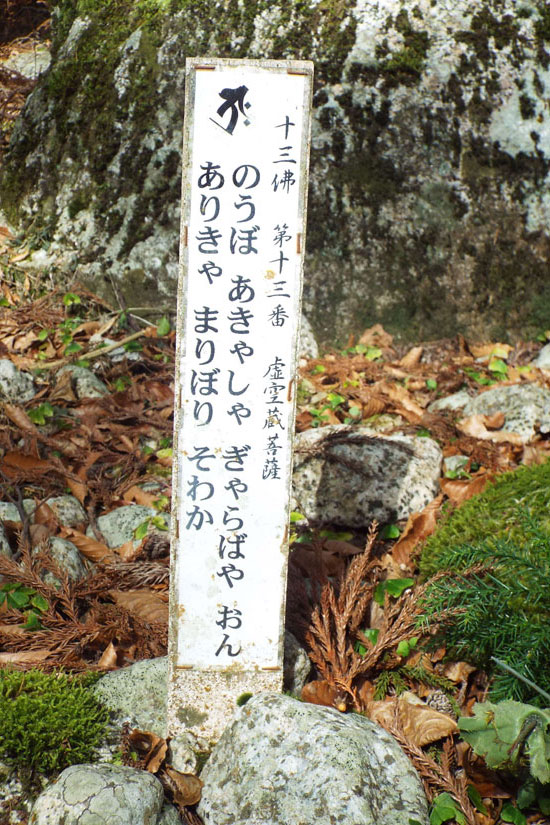 𑖝𑖿𑖨𑖯𑖾
十三佛 第十三番 虚空蔵菩薩
のうぼ あきゃしゃ ぎゃらばや おん
ありきゃ まりぼり そわか